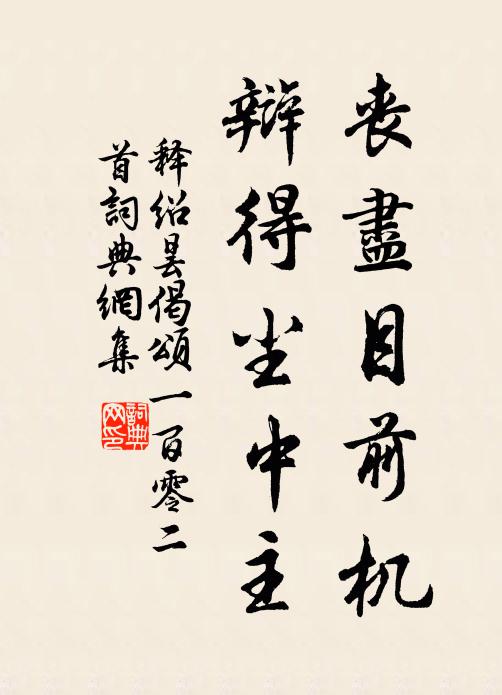 丧盡目前机
辩得尘中主
释绍昙偈颂一百零二
首詞典網集
詞典网印